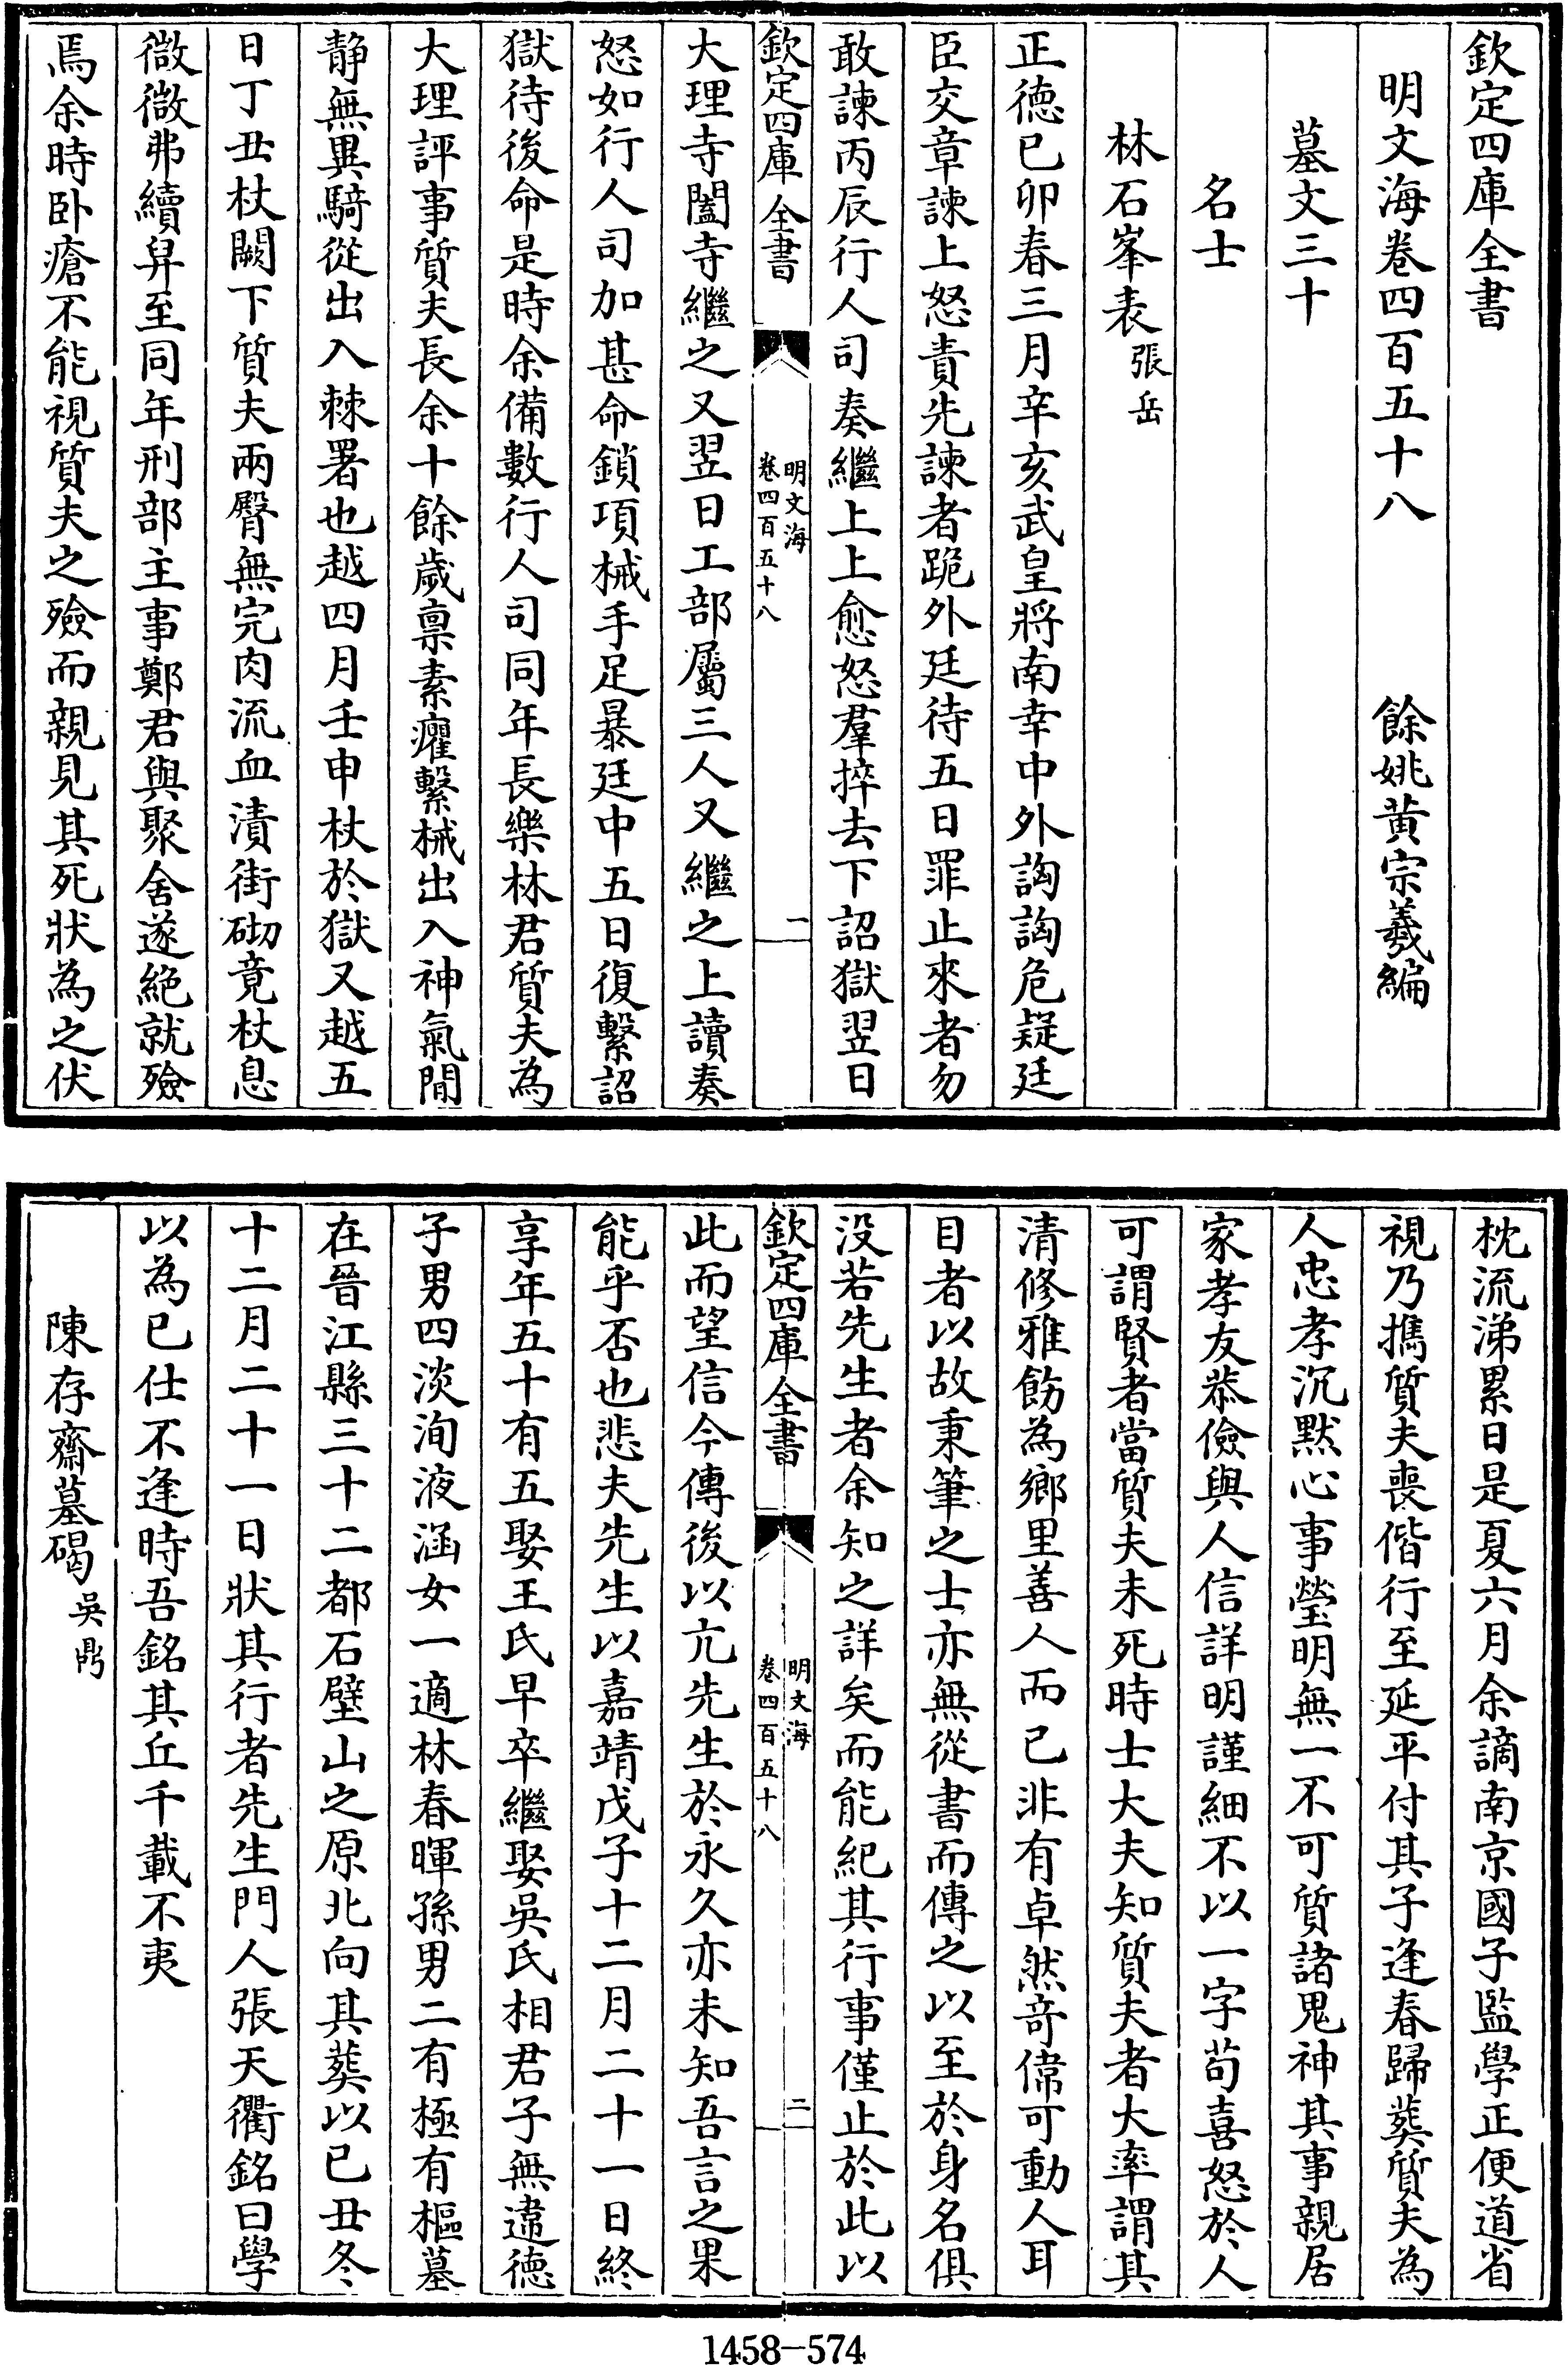 欽定四庫全書
明文海卷四百五十八　餘姚黄宗羲編
墓文三十
名士
林石峯表張岳
正德已卯春三月辛亥武皇將南幸中外詾詾危疑廷
臣交章諫上怒責先諫者跪外廷待五日罪止來者勿
敢諫丙辰行人司奏繼上上愈怒羣捽去下詔獄翌日
欽定四庫全書
明文海
卷四百五十八
一
大理寺闔寺繼之又翌日工部屬三人又繼之上讀奏
怒如行人司加甚命鎖項械手足暴廷中五日復繫詔
獄待後命是時余備數行人司同年長樂林君質夫為
大理評事質夫長余十餘歲禀素癯繫械出入神氣閒
静無異騎從出入棘署也越四月壬申杖於獄又越五
日丁丑杖闕下質夫兩臀無完肉流血漬街砌竟杖息
微微弗續舁至同年刑部主事鄭君與聚舍遂絶就殮
焉余時卧瘡不能視質夫之殮而親見其死狀為之伏
枕流涕累日是夏六月余謫南京國子監學正便道省
視乃攜質夫喪偕行至延平付其子逢春歸葬質夫為
人忠孝沉默心事瑩明無一不可質諸鬼神其事親居
家孝友恭儉與人信詳明謹細不以一字苟喜怒於人
可謂賢者當質夫未死時士大夫知質夫者大率謂其
清修雅飭為鄉里善人而已非有卓然奇偉可動人耳
目者以故秉筆之士亦無從書而傳之以至於身名俱
没若先生者余知之詳矣而能紀其行事僅止於此以
欽定四庫全書
明文海
卷四百五十八
二
此而望信今傳後以亢先生於永久亦未知吾言之果
能乎否也悲夫先生以嘉靖戊子十二月二十一日終
享年五十有五娶王氏早卒繼娶吳氏相君子無違德
子男四淡洵液涵女一適林春暉孫男二有極有樞墓
在晉江縣三十二都石壁山之原北向其葬以已丑冬
十二月二十一日狀其行者先生門人張天衢銘曰學
以為已仕不逢時吾銘其丘千載不夷
陳存齋墓碣吳鼎
1458-574